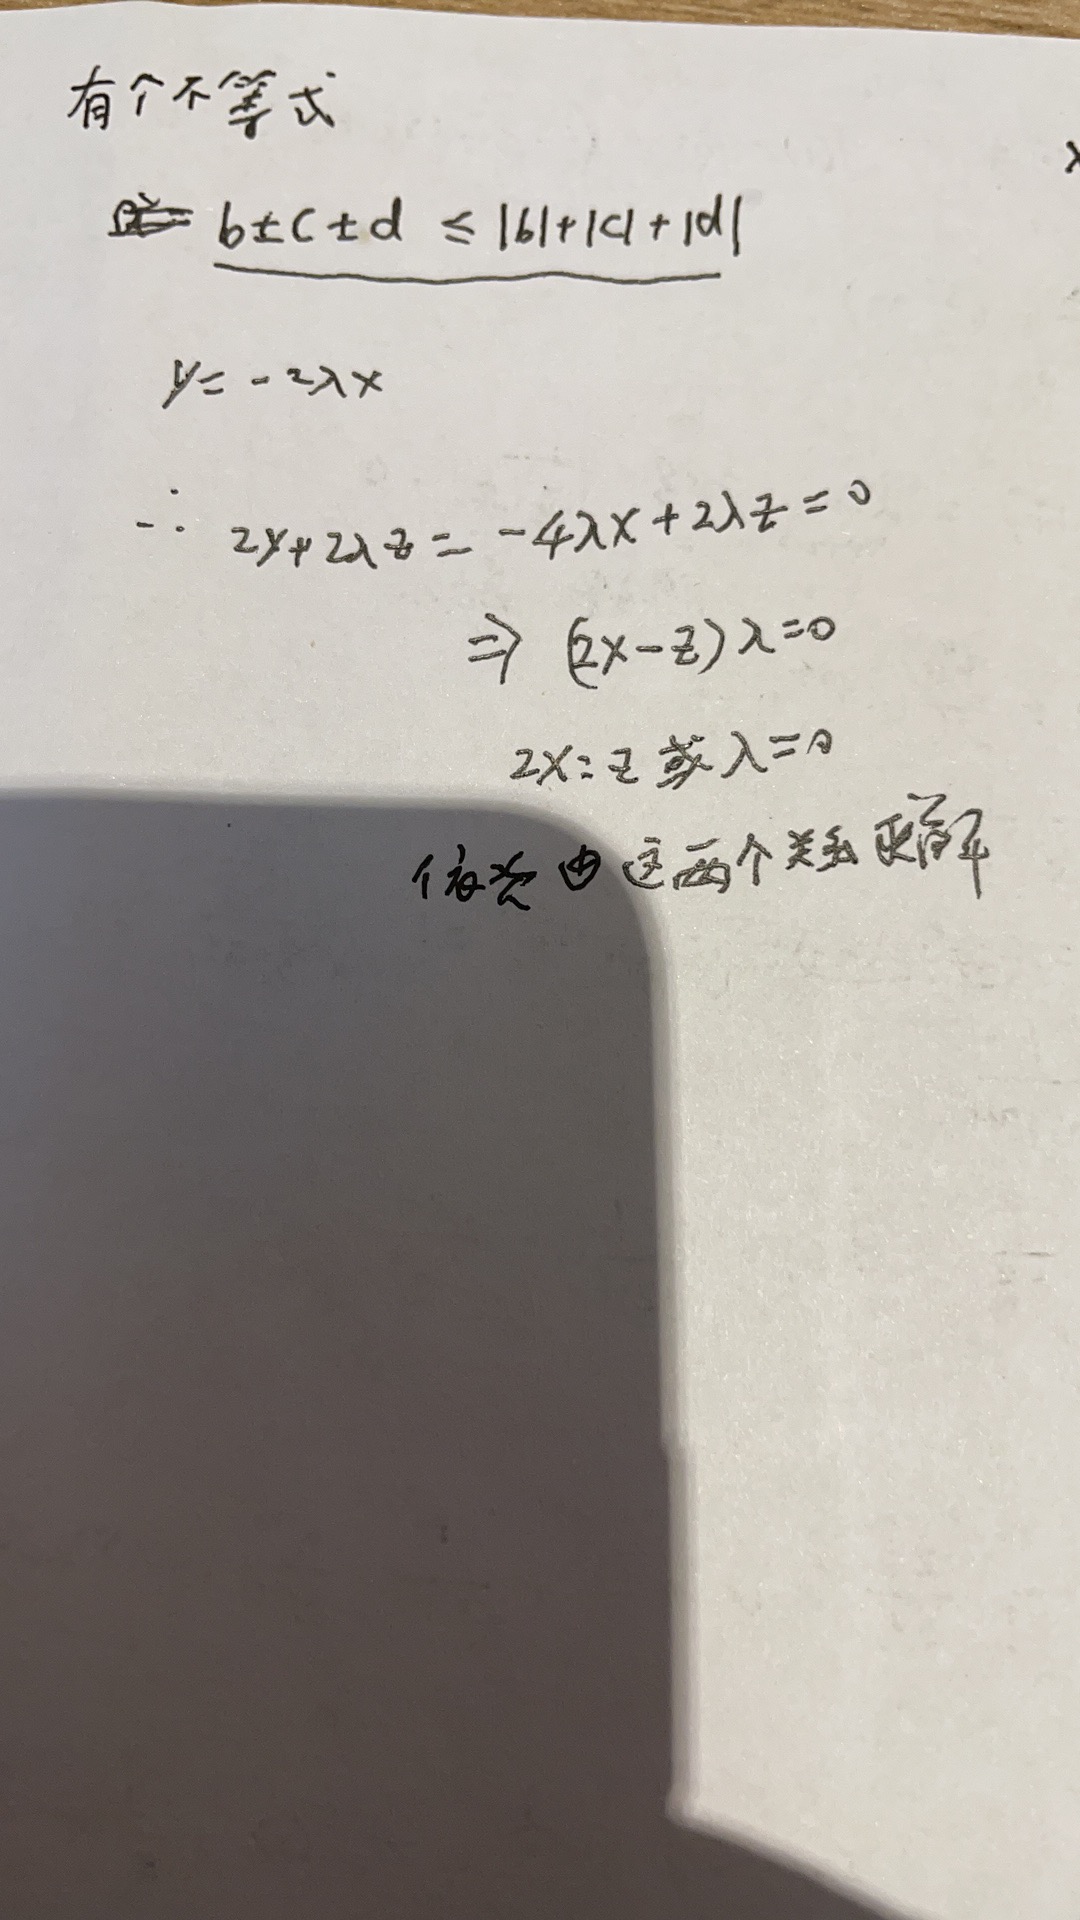 有个不等式
b±c±d ≤ |b|+|c|+|d|
y=-2λx
∴ 2y+2λz=-4λx+2λz=0
⇒ (2x-z)λ=0
2x=z或λ=0
依次由这两个关系求解